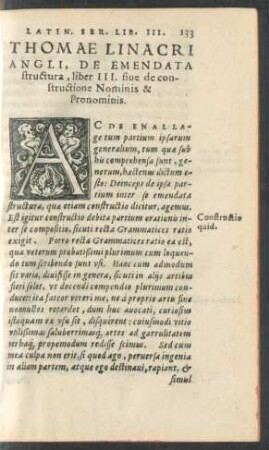 LATIN. SER. LIB. III. 133
THOMAE LINACRI
ANGLI, DE EMENDATA
structura, liber III. siue de con-
structione Nominis &
Pronominis.
AC DE ENALLA-
ge tum partium ipsarum
generalium, tum quæ sub
his comprehensa sunt, ge-
nerum, hactenus dictum e-
sto: Deinceps de ipsa par-
tium inter se emendata
structura, quæ etiam constructio dicitur, agemus.
Est igitur constructio debita partium orationis in-
ter se compositio, sicuti recta Grammatices ratio
exigit. Porro recta Grammatices ratio ea est,
qua veterum probatissimi plurimum cum loquen-
do tum scribendo sunt vsi. Haec cum admodum
sit varia, diuisisse in genera, sicuti in alijs artibus
fieri solet, vt docendi compendio plurimum con-
ducere ita fateor vereri me, ne à proprio artu sine
nonnullos retardet, dum huc auocati, curiosius
istaquam ex vsu sit, disquirent: cuiusmodi vitio
vtilissimas saluberrimasq; artes ad garrulitatem
verbaq; propemodum redisse scimus. Sed cum
mea culpa non erit, si quod ago, peruersa ingenia
in aliam partem, atque ego destinaui, rapiant, &
simul
Constructio
quid.